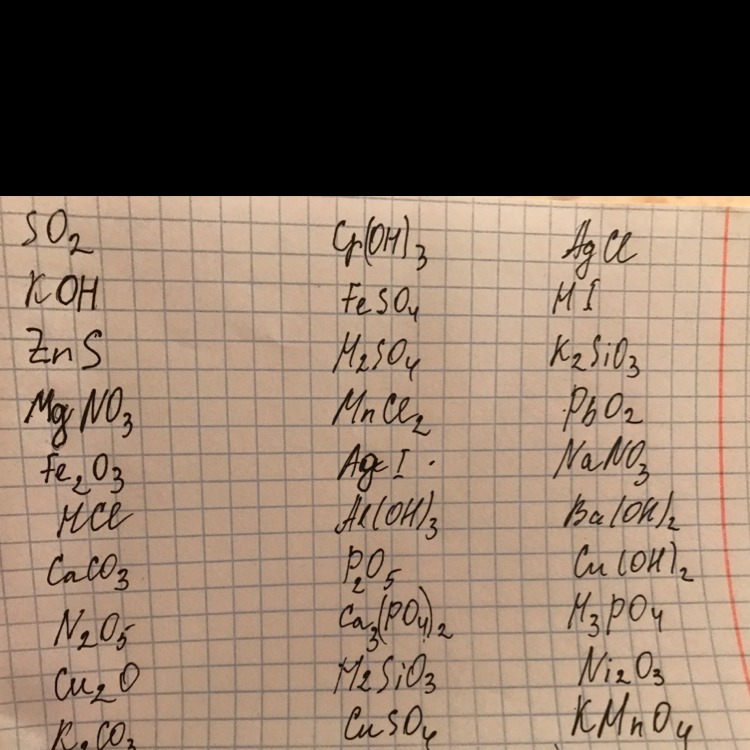 SO₂
KOH
ZnS
MgNO₃
Fe₂O₃
HCl
CaCO₃
N₂O₅
Cu₂O
K₂CO₃
Cr(OH)₃
FeSO₄
H₂SO₄
MnCl₂
AgI
Al(OH)₃
P₂O₅
Ca₃(PO₄)₂
H₂SiO₃
CuSO₄
AgCl
HI
K₂SiO₃
PbO₂
NaNO₃
Ba(OH)₂
Cu(OH)₂
H₃PO₄
Ni₂O₃
KMnO₄